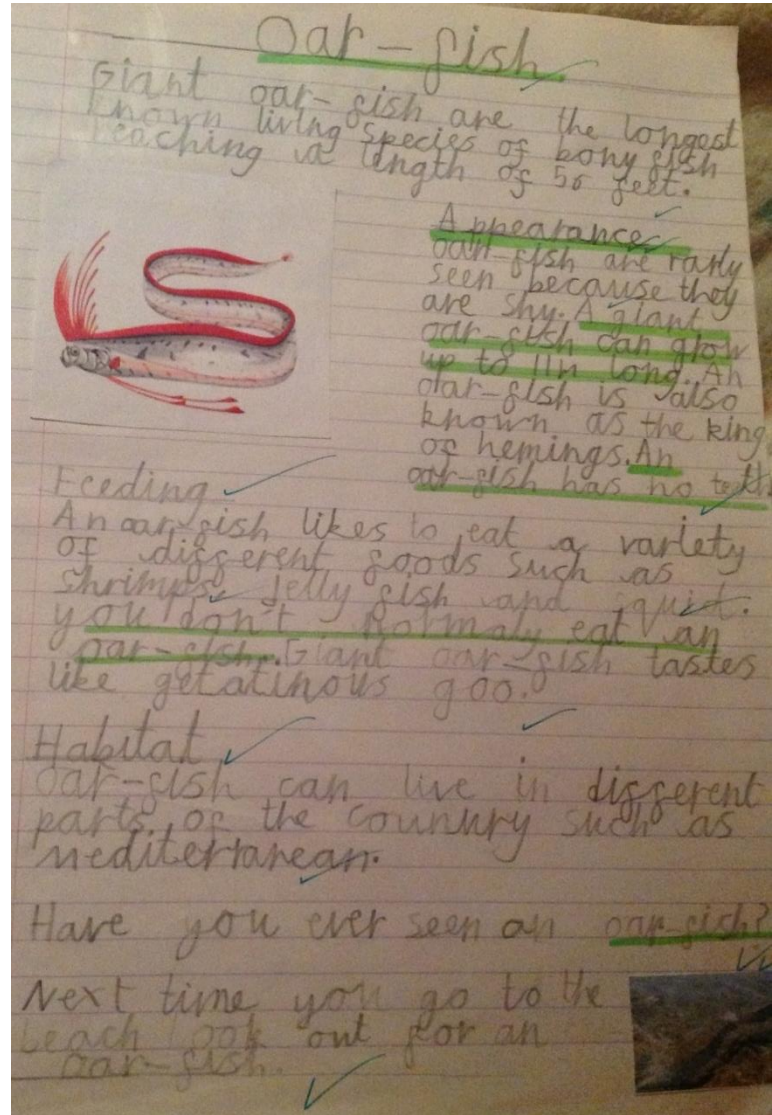 Oar-fish
Giant oar-fish are the longest
known living species of bony fish
reaching a length of 56 feet.
Appearance
oar-fish are rarly
seen because they
are shy. A giant
oar-fish can grow
up to 11m long. An
oar-fish is also
known as the king
of hemings. An
oar-fish has no teeth
Feeding
An oar-fish likes to eat a variety
of different foods such as
shrimps, Jelly fish and squit.
you don't normaly eat an
oar-fish. Giant oar-fish tastes
like getatinous goo.
Habitat
oar-fish can live in different
parts of the counury such as
mediterranean.
Have you ever seen an oar-fish?
Next time you go to the
beach look out for an
oar-fish.